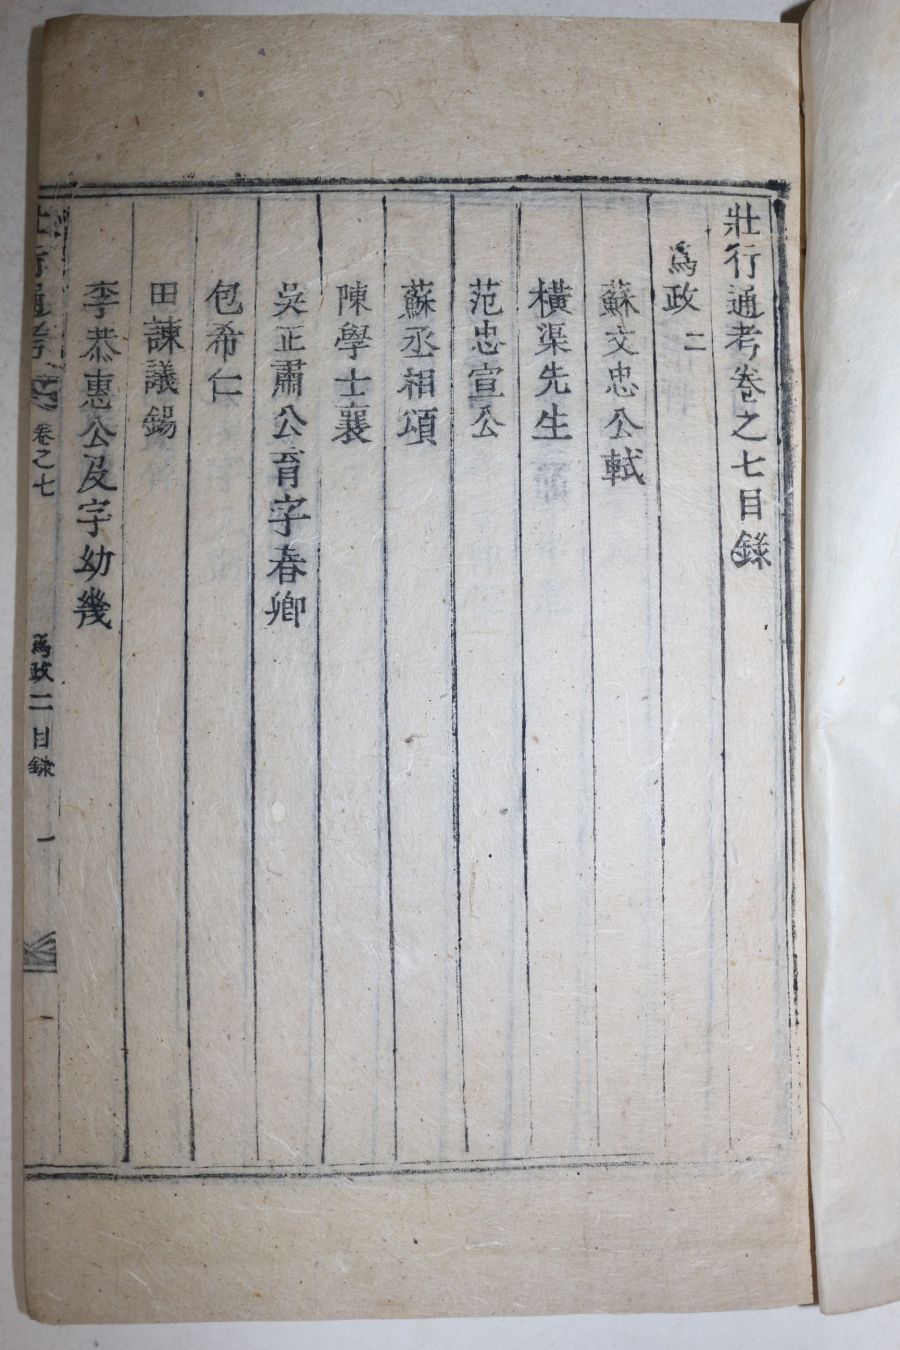 壯行通考卷之七目錄
爲政 二
蘇文忠公軾
橫渠先生
范忠宣公
蘇丞相頌
陳學士襄
吳正肅公育字春卿
包希仁
田諫議錫
李恭惠公及字幼幾
壯行通考 卷之七 爲政二 目錄 一